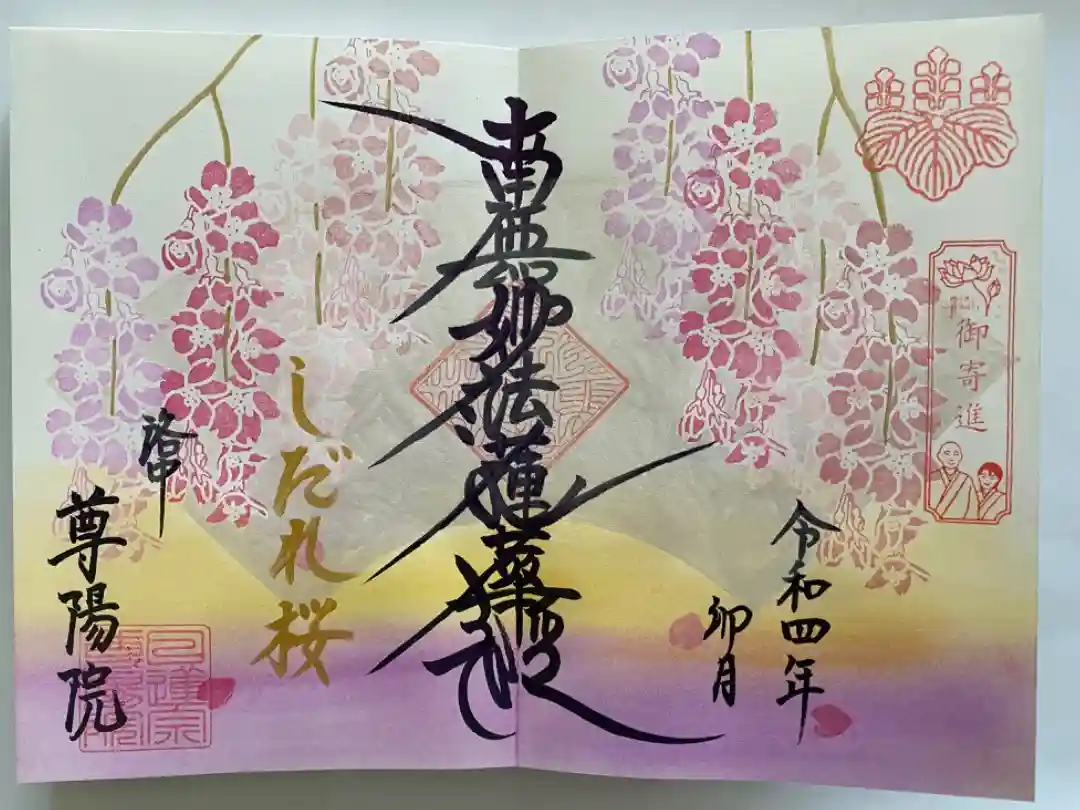 御寄進
令和四年
卯月
南無妙法蓮華経
しだれ桜
尊陽院
日蓮宗